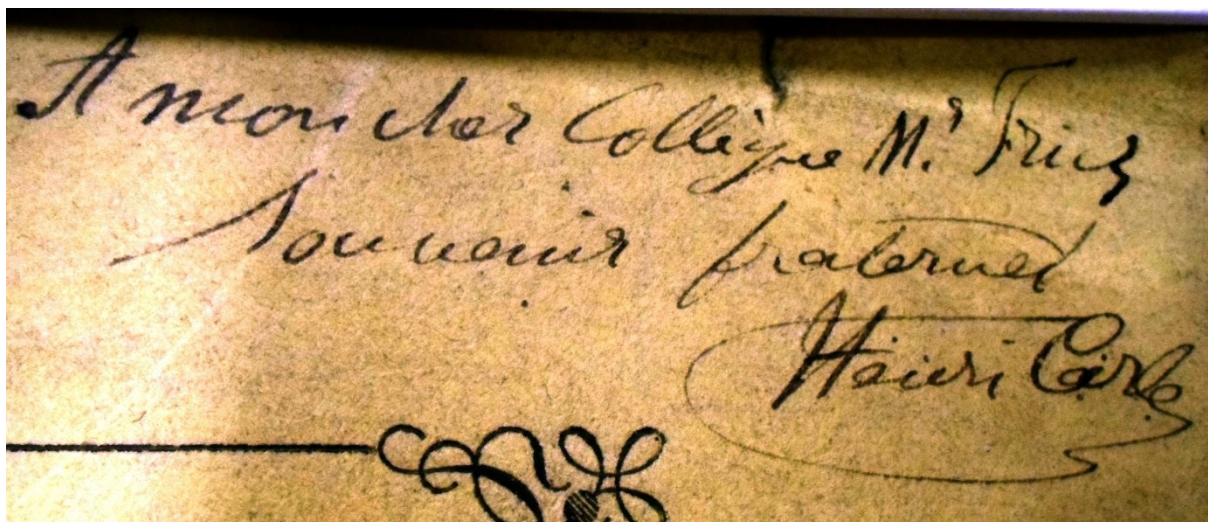 A mon cher Collègue Mr Frick
Souvenir fraternel
Henri Carle